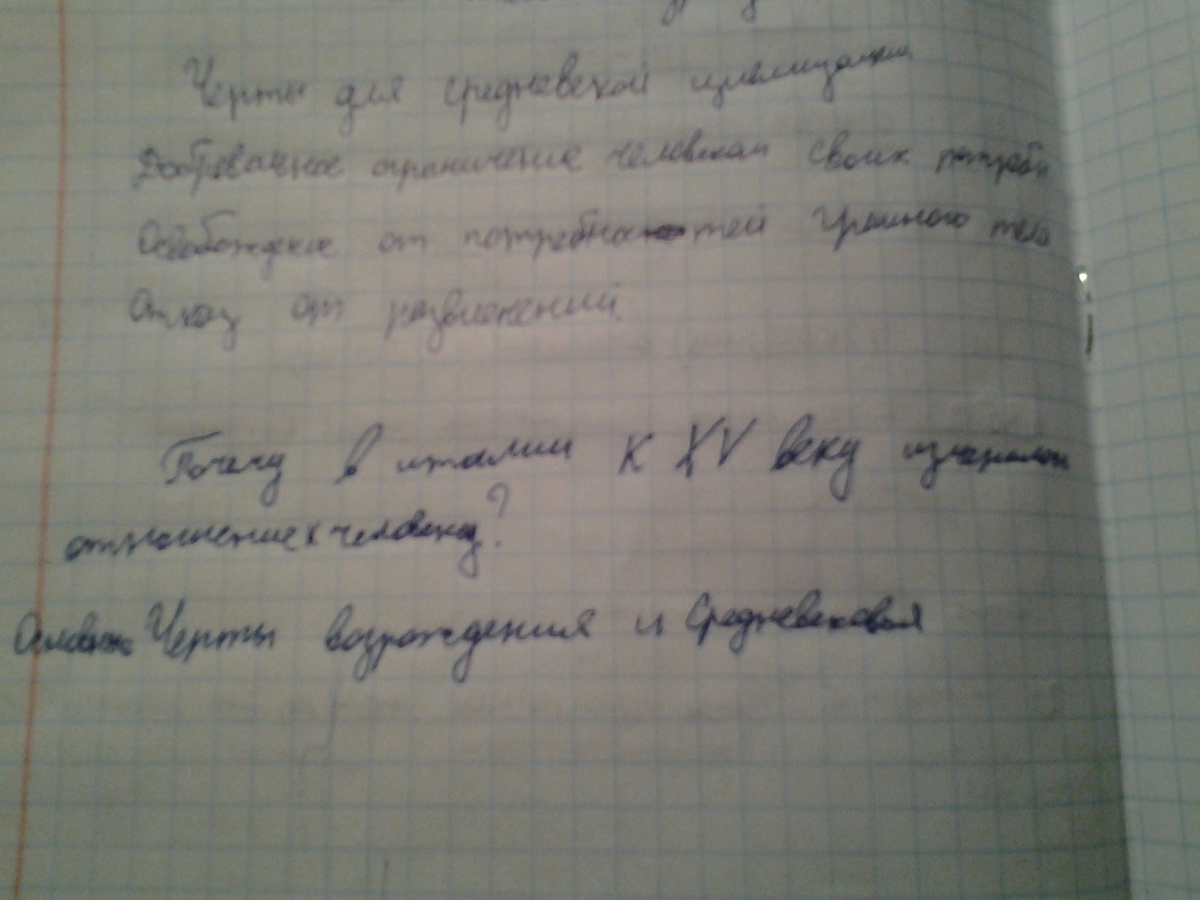 Черты для средневекой цивилизации
Добровольное ограничение человеком своих потребн
Освобождение от потребностей грешного тела
Отказ от развлечений.
Почему в италии к XV веку изменилось
отношение к человеку?
Основные Черты возрождения и Средневековья